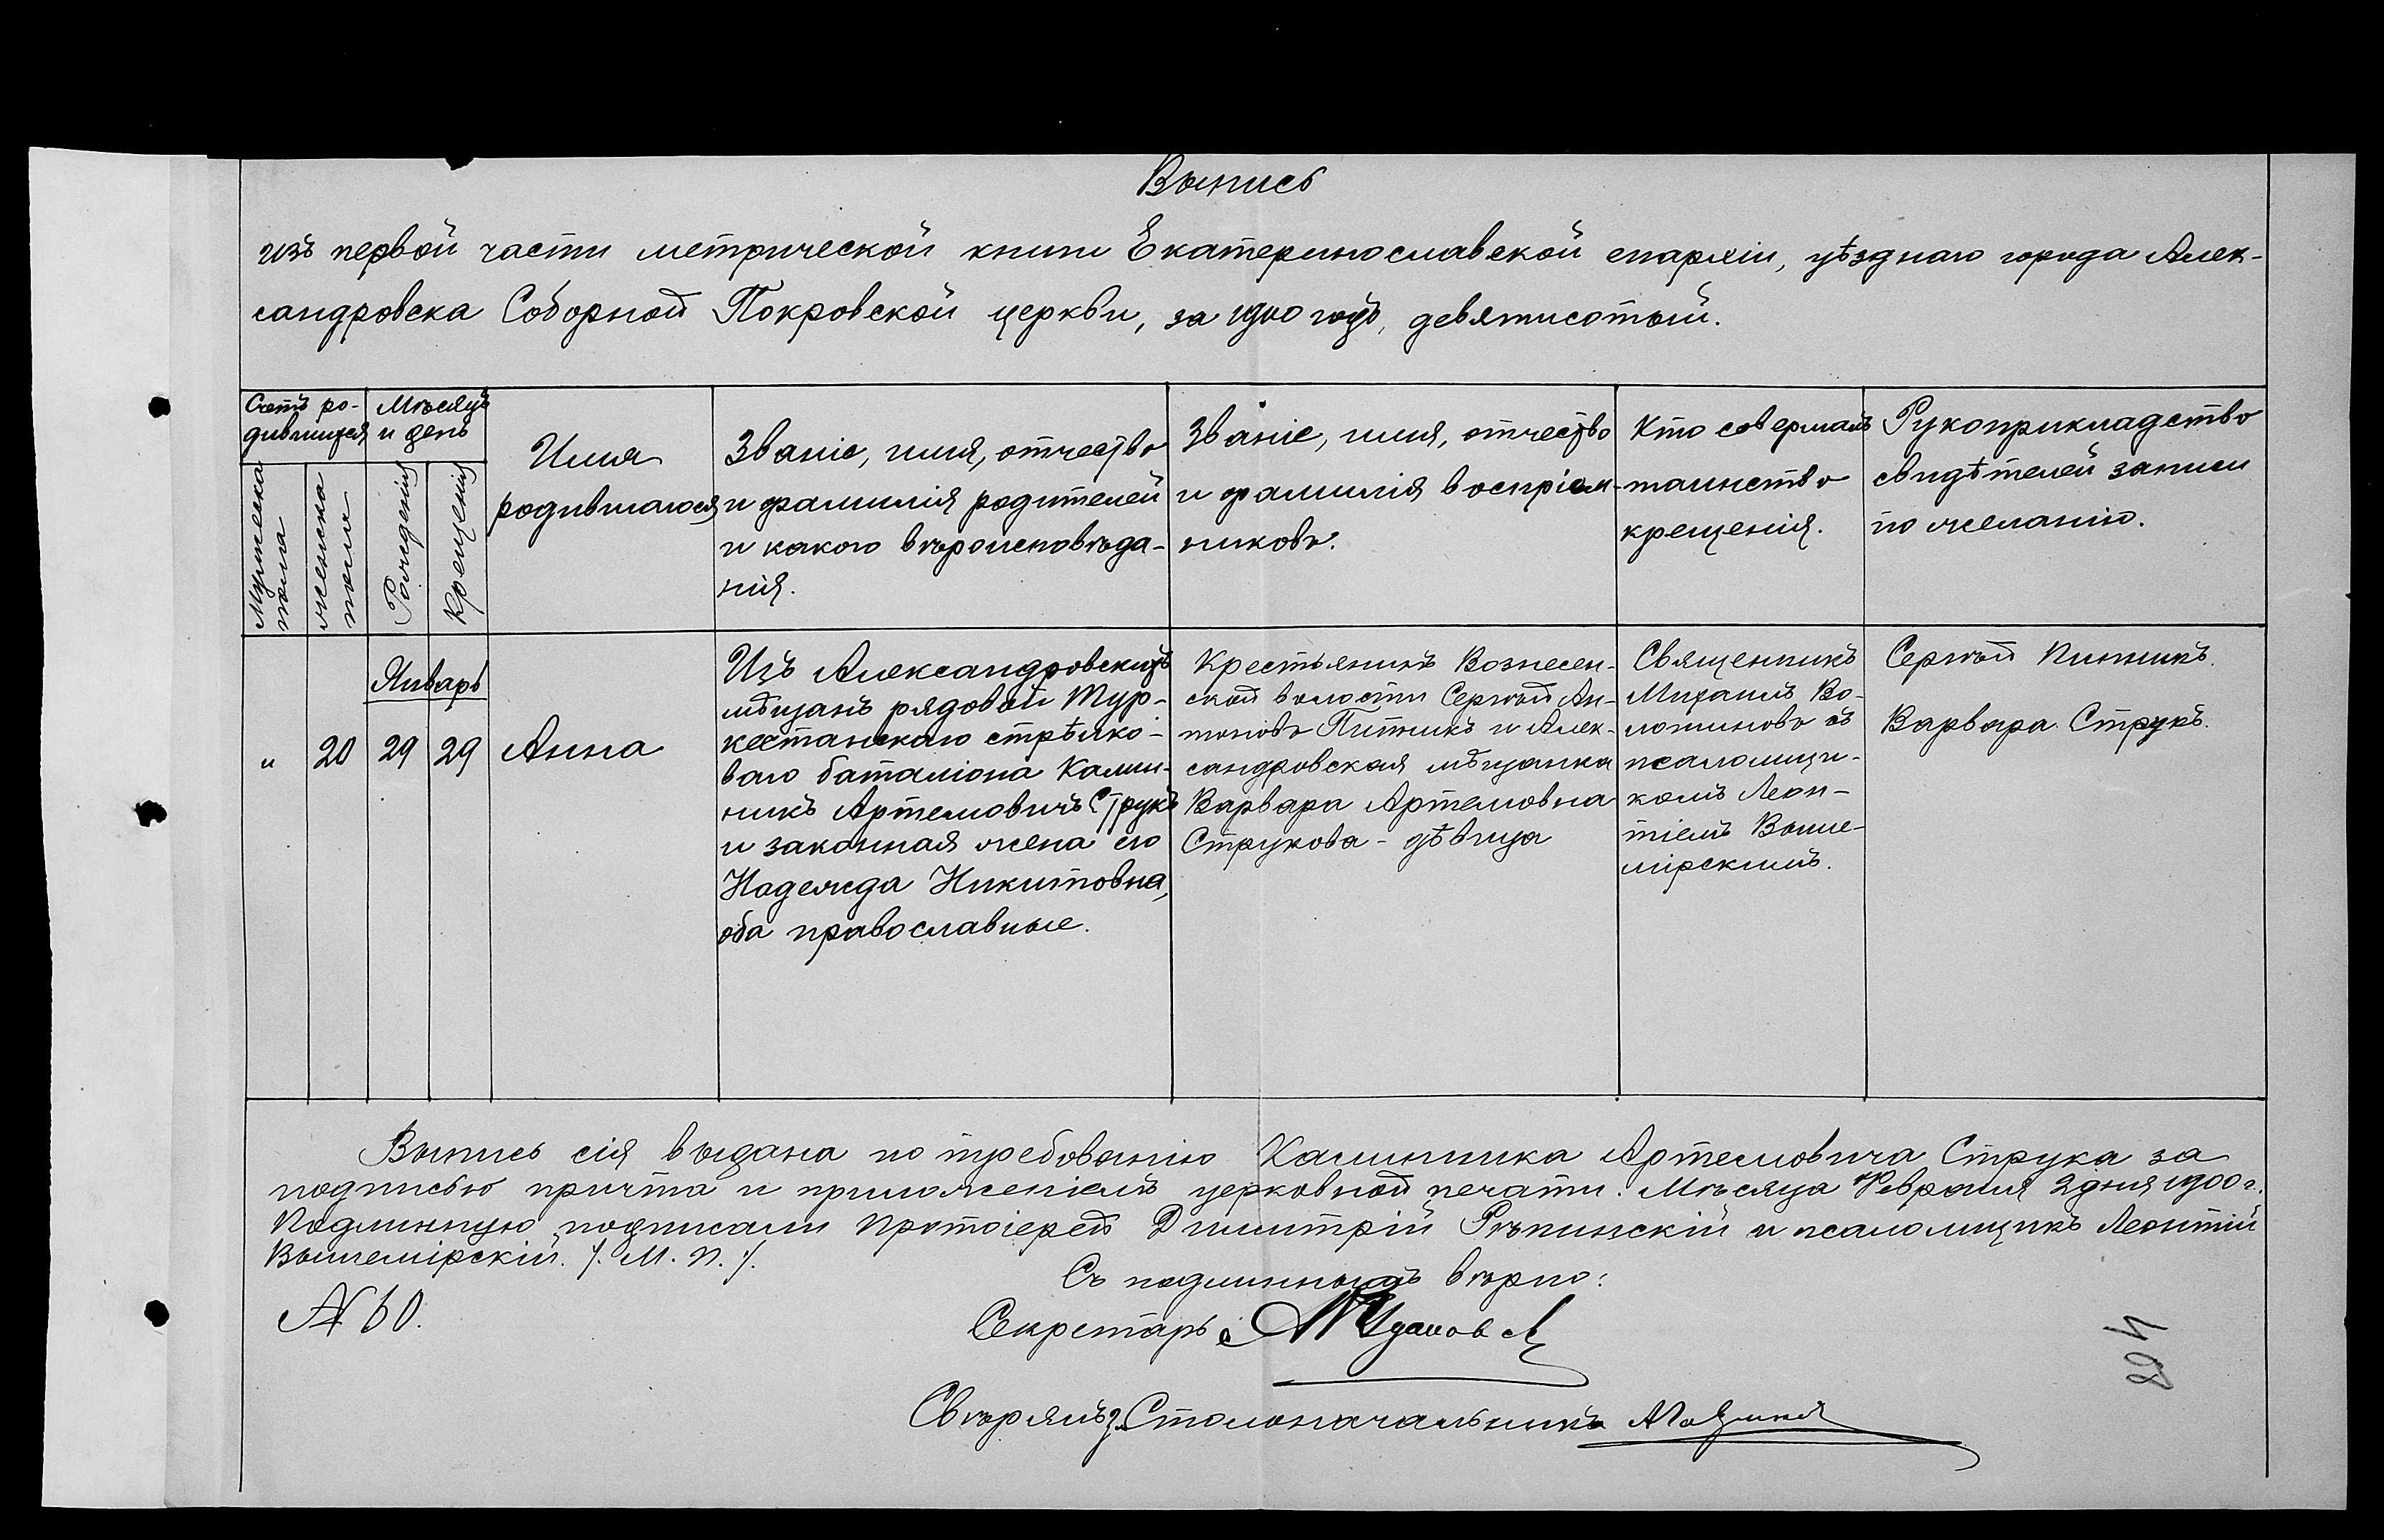 Выпись
изъ первой части метрической книги Екатеринославской епархіи, уѣзднаго города Алек-
сандровска Соборной Покровской церкви, за 1900 годъ, девятисотый.
Счетъ ро-
дившихся
Мѣсяцъ
и день
Мужеска
пола
женска
пола
Рожденія
Крещенія
Имя
родившагося
Званіе, имя, отчество
и фамилія родителей
и какого вѣроисповѣда-
нія.
Званіе, имя, отчество
и фамилія воспріем-
никовъ.
Кто совершалъ
таинство
крещенія.
Рукоприкладство
свидѣтелей записи
по желанію.
„
20
Январь
29
29
Анна
Изъ Александровскихъ
мѣщанъ рядовой Тур-
кестанскаго стрѣлко-
ваго баталіона Калин-
никъ Артемовичъ Струкъ
и законная жена его
Надежда Никитовна,
оба православные.
Крестьянинъ Вознесен-
ской волости Сергѣй Ан-
тоновъ Питникъ и Алек-
сандровская мѣщанка
Варвара Артемовна
Струкова - дѣвица
Священникъ
Михаилъ Во-
лошиновъ съ
псаломщи-
комъ Леон-
тіемъ Выше-
мірскимъ.
Сергѣй Питникъ.
Варвара Струкъ.
Выпись сія выдана по требованію Калинника Артемовича Струка за
подписью причта и приложеніемъ церковной печати. Мѣсяца Февраля 2 дня 1900 г.
Подлинную подписали Протоіерей Димитрій Рѣпинскій и псаломщикъ Леонтій
Вышемірскій. /. М. П. /.
Съ подлиннымъ вѣрно:
№ 60.
Секретарь
Свѣрялъ: Столоначальникъ
204